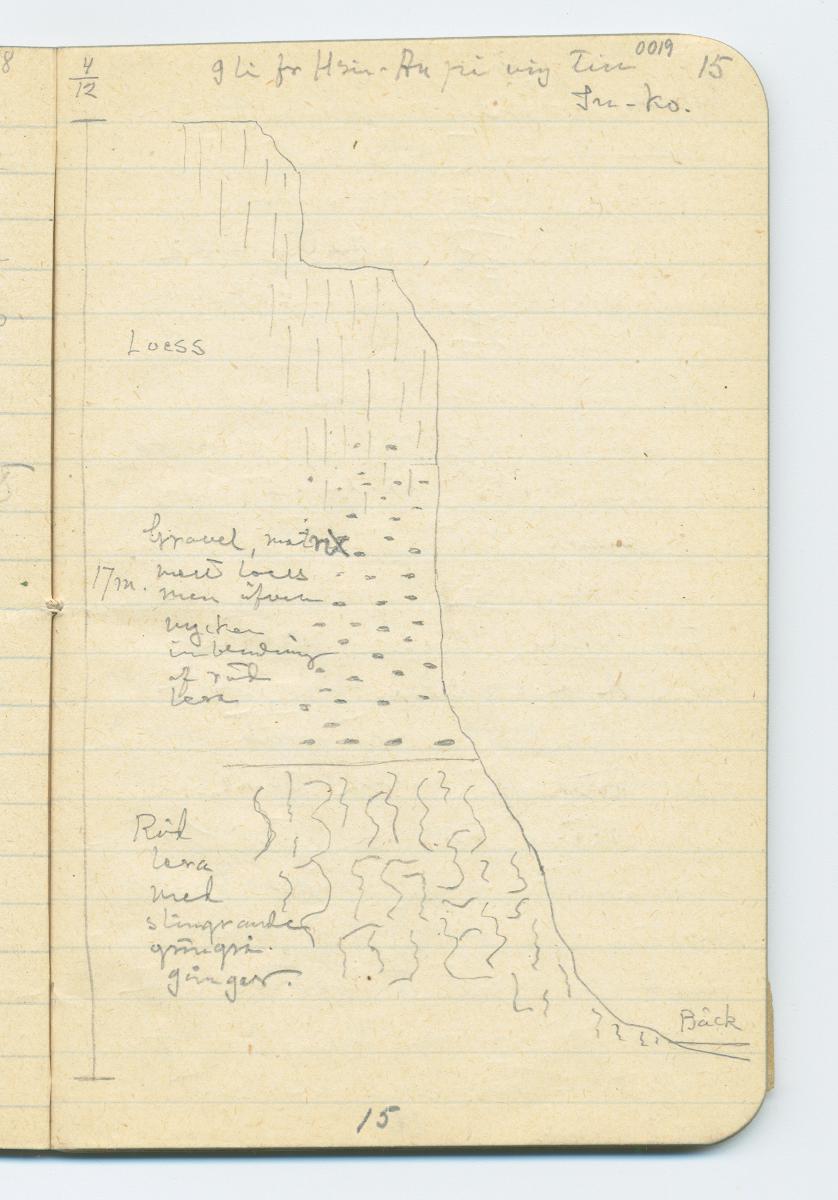 8
4/12
0019
9 li fr Hsin-An på väg Tien
15
Tu-ko.
Loess
Gravel, matrix
mest loess
17 m.
men äfven
mycken
inblandning
af röd
lera
Röd
lera
med
slingrande
gröngrå
gångar.
Bäck
15